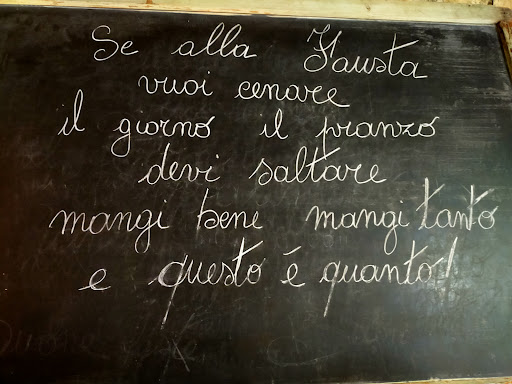 Se alla Fausta
vuoi cenare
il giorno il pranzo
devi saltare
mangi bene mangi tanto
e questo è quanto!